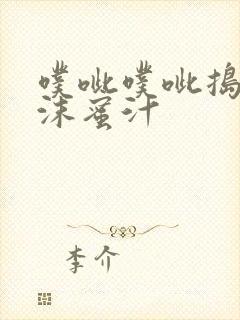 噗呲噗呲捣
沫蜜汁
李介